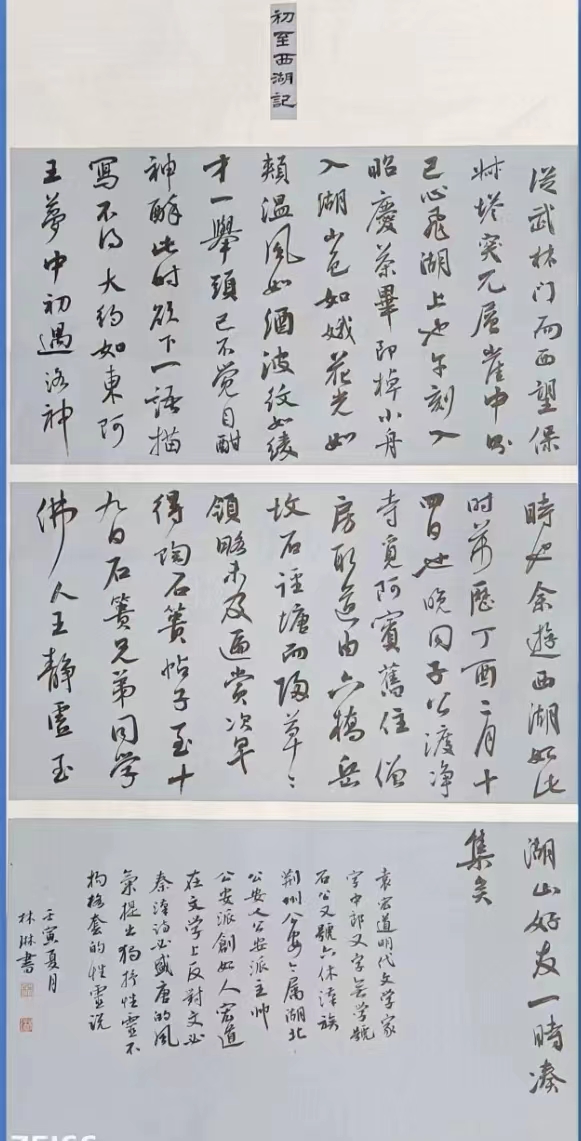 初至西湖記
從武林门而西望保
叔塔突兀層崖中則
已心飛湖上也午刻入
昭慶茶畢即棹小舟
入湖山色如娥花光如
頰溫風如酒波紋如綾
才一舉頭已不覺目酣
神醉此时欲下一語描
寫不得大約如東阿
王夢中初遇洛神
時也余遊西湖始此
时萬歷丁酉二月十
四日也晚同子公渡净
寺覓阿賓舊住僧
房取道由六橋岳
坟石徑塘而歸草〻
領略未及遍賞次早
得陶石簣帖子至十
九日石簣兄弟同学
佛人王静虛至
湖山好友一時凑
集矣
袁宏道明代文学家
字中郎又字無学號
石公又號六休漢族
荆州公安〻属湖北
公安人公安派主帅
公安派創始人宏道
在文学上反對文必
秦漢詩必盛唐的風
氣提出獨抒性靈不
拘格套的性靈说
壬寅夏月
林琳書
ZEISS